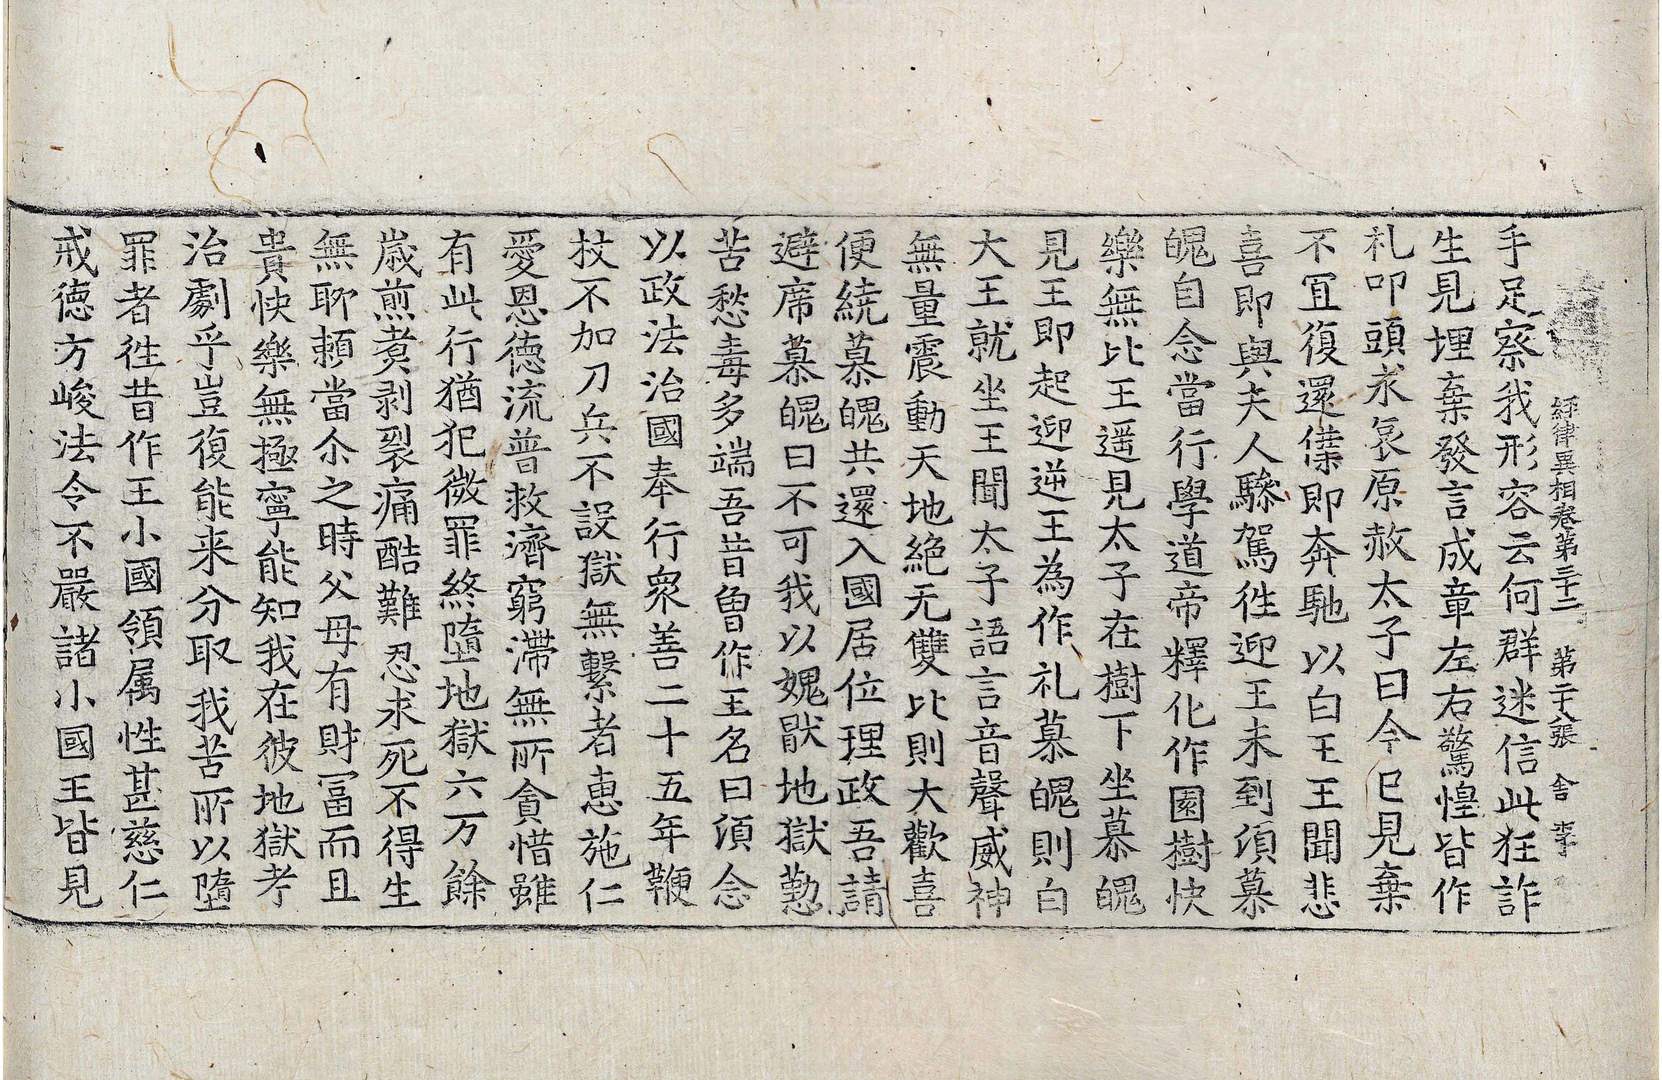 經律異相卷第三十二 第二十八張 舍 李
手足察我形容云何群迷信此狂詐
生見埋棄發言成章左右驚惶皆作
礼叩頭求哀原赦太子曰今已見棄
不宜復還僕即奔馳以白王王聞悲
喜即與夫人驂駕徃迎王未到須慕
魄自念當行學道帝釋化作園樹快
樂無比王遥見太子在樹下坐慕魄
見王即起迎逆王為作礼慕魄則白
大王就坐王聞太子語言音聲威神
無量震動天地絶无雙比則大歡喜
便繞慕魄共還入國居位理政吾請
避席慕魄曰不可我以媿猒地獄懃
苦愁毒多端吾昔曾作王名曰須念
以政法治國奉行衆善二十五年鞭
杖不加刀兵不設獄無繫者恵施仁
愛恩德流普救濟窮滯無所貪惜雖
有此行猶犯微罪終墮地獄六万餘
歳煎煑剥裂痛酷難忍求死不得生
無聊頼當尒之時父母有財冨而且
貴快樂無極寧能知我在彼地獄考
治劇乎豈復能来分取我苦所以墮
罪者徃昔作王小國領属性甚慈仁
戒徳方峻法令不嚴諸小國王皆見